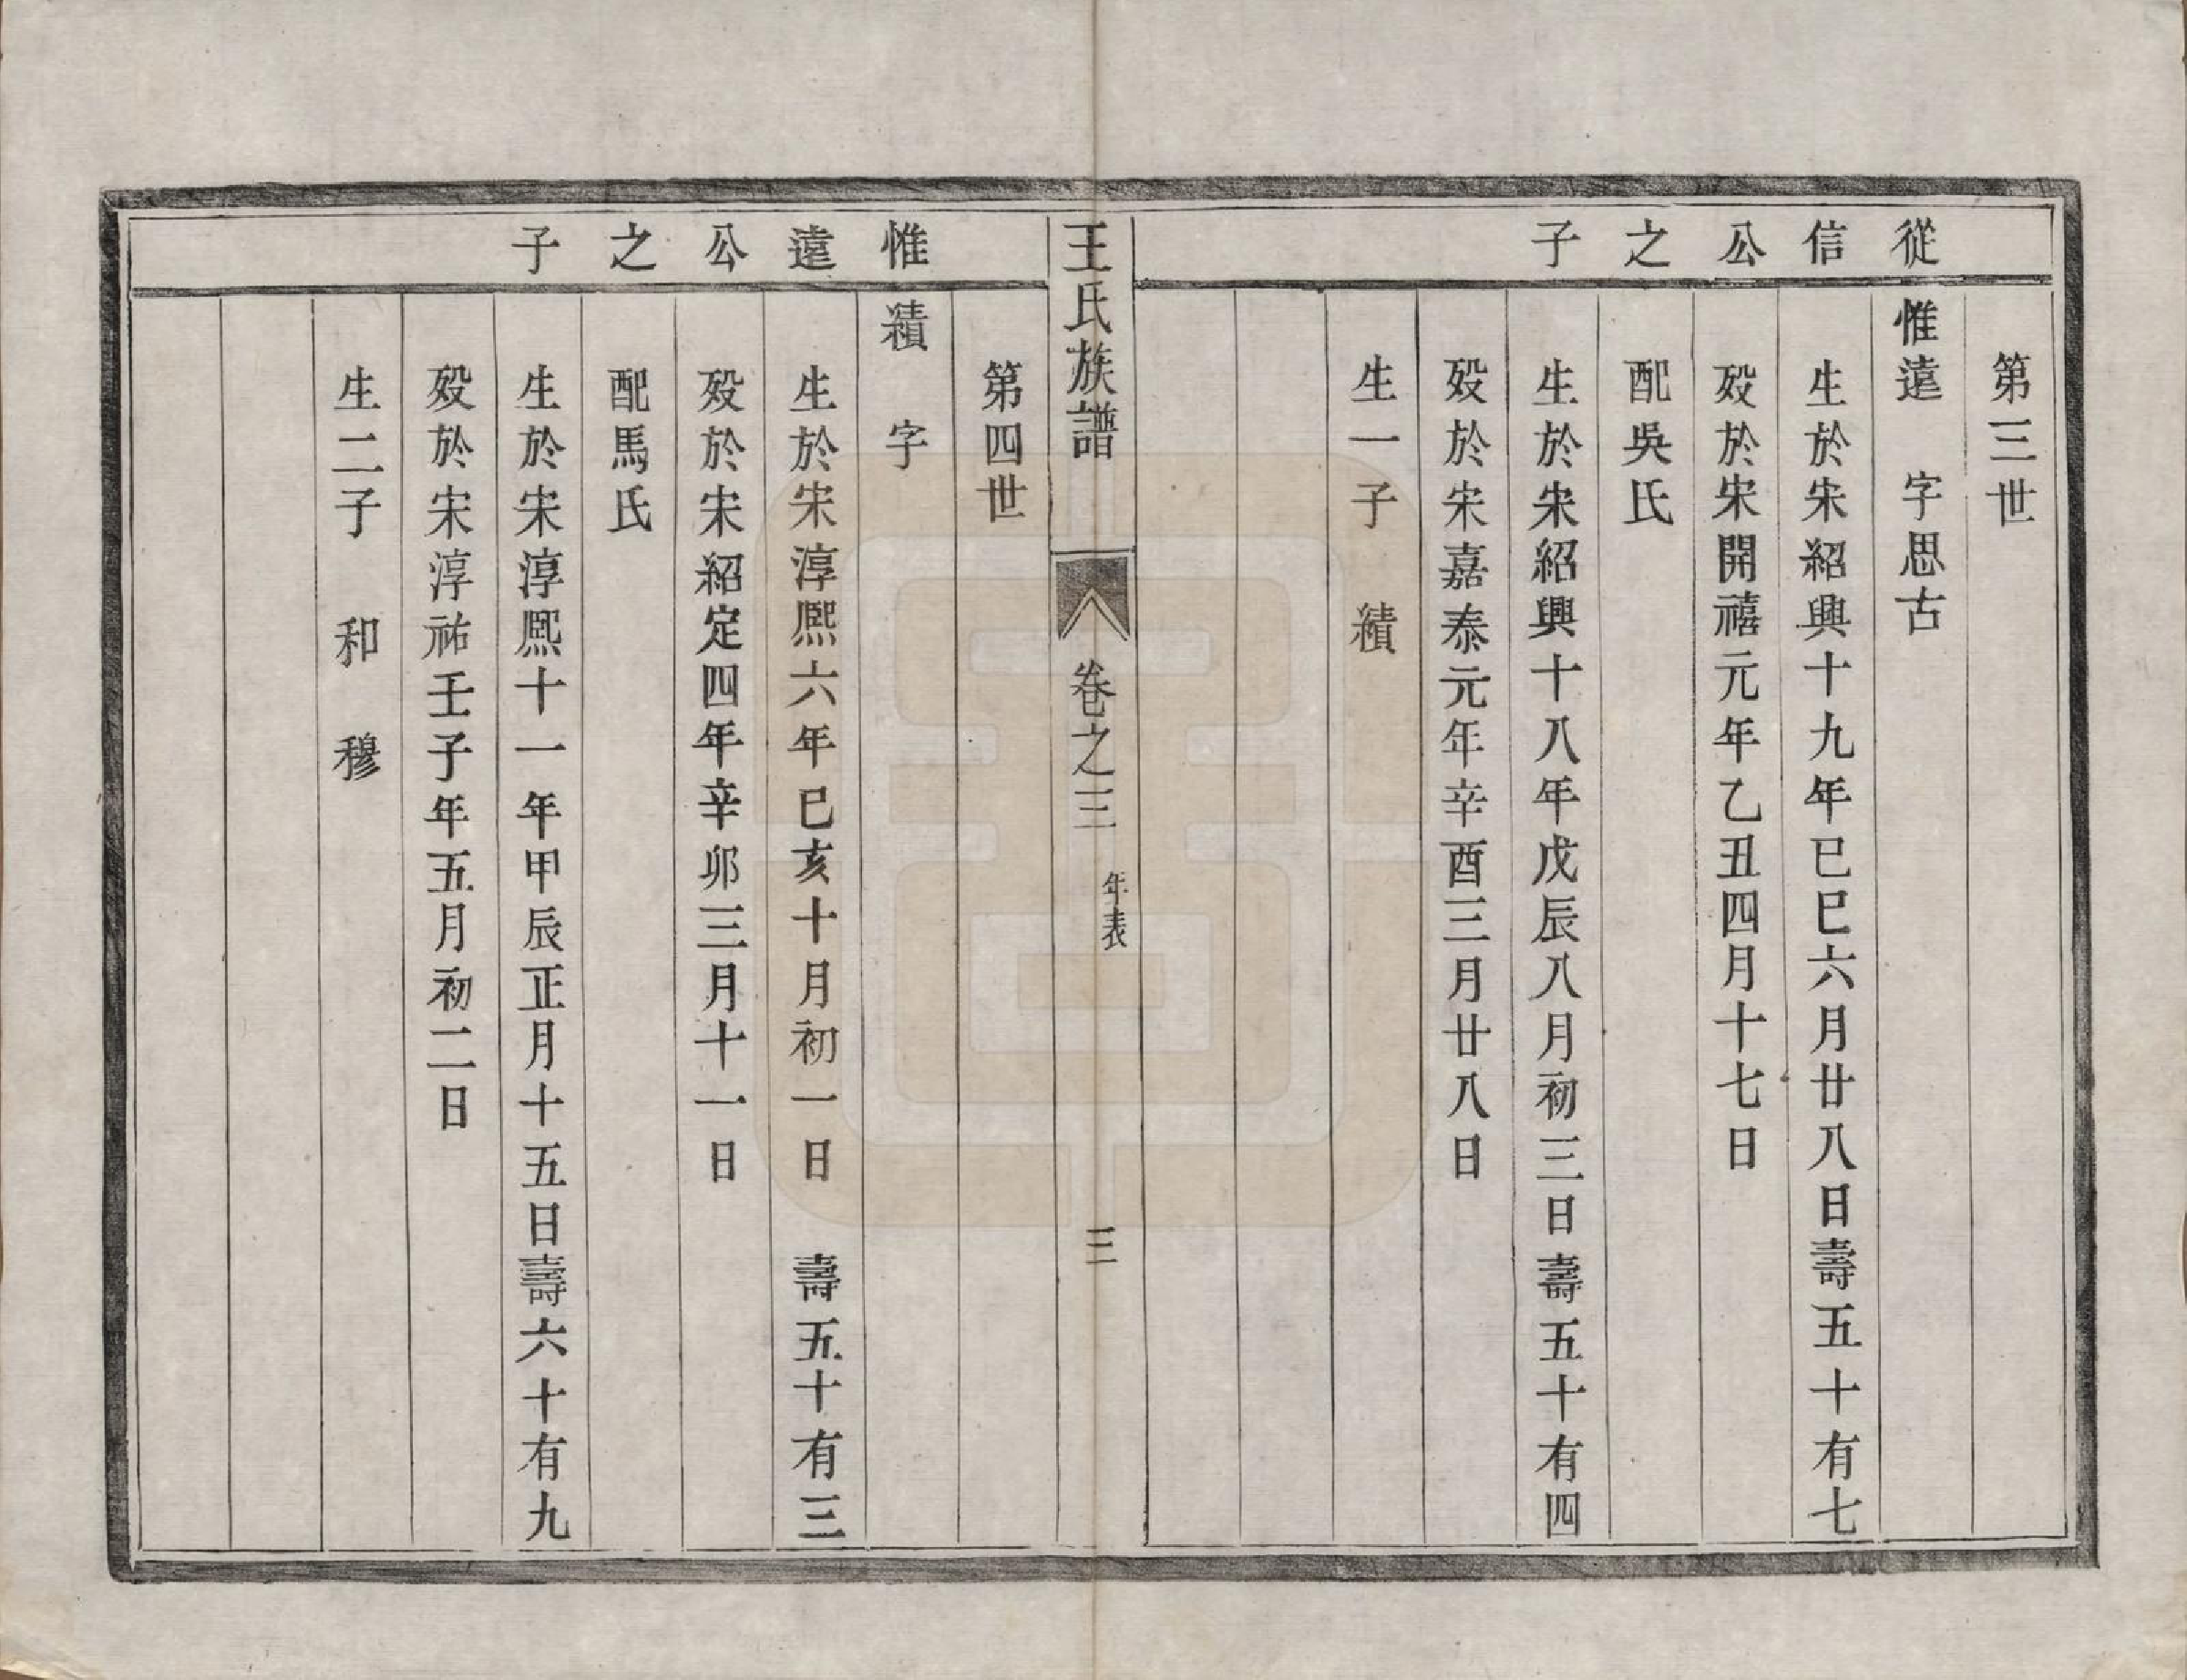 從信公之子
第三世
惟遠　字思古
生於宋紹興十九年已巳六月廿八日壽五十有七
殁於宋開禧元年乙丑四月十七日
配吳氏
生於宋紹興十八年戊辰八月初三日壽五十有四
殁於宋嘉泰元年辛酉三月廿八日
生一子　績
王氏族譜　卷之三　年表　三
惟遠公之子
第四世
積　字
生於宋淳熙六年已亥十月初一日　壽五十有三
殁於宋紹定四年辛卯三月十一日
配馬氏
生於宋淳熙十一年甲辰正月十五日壽六十有九
殁於宋淳祐壬子年五月初二日
生二子　和　穆